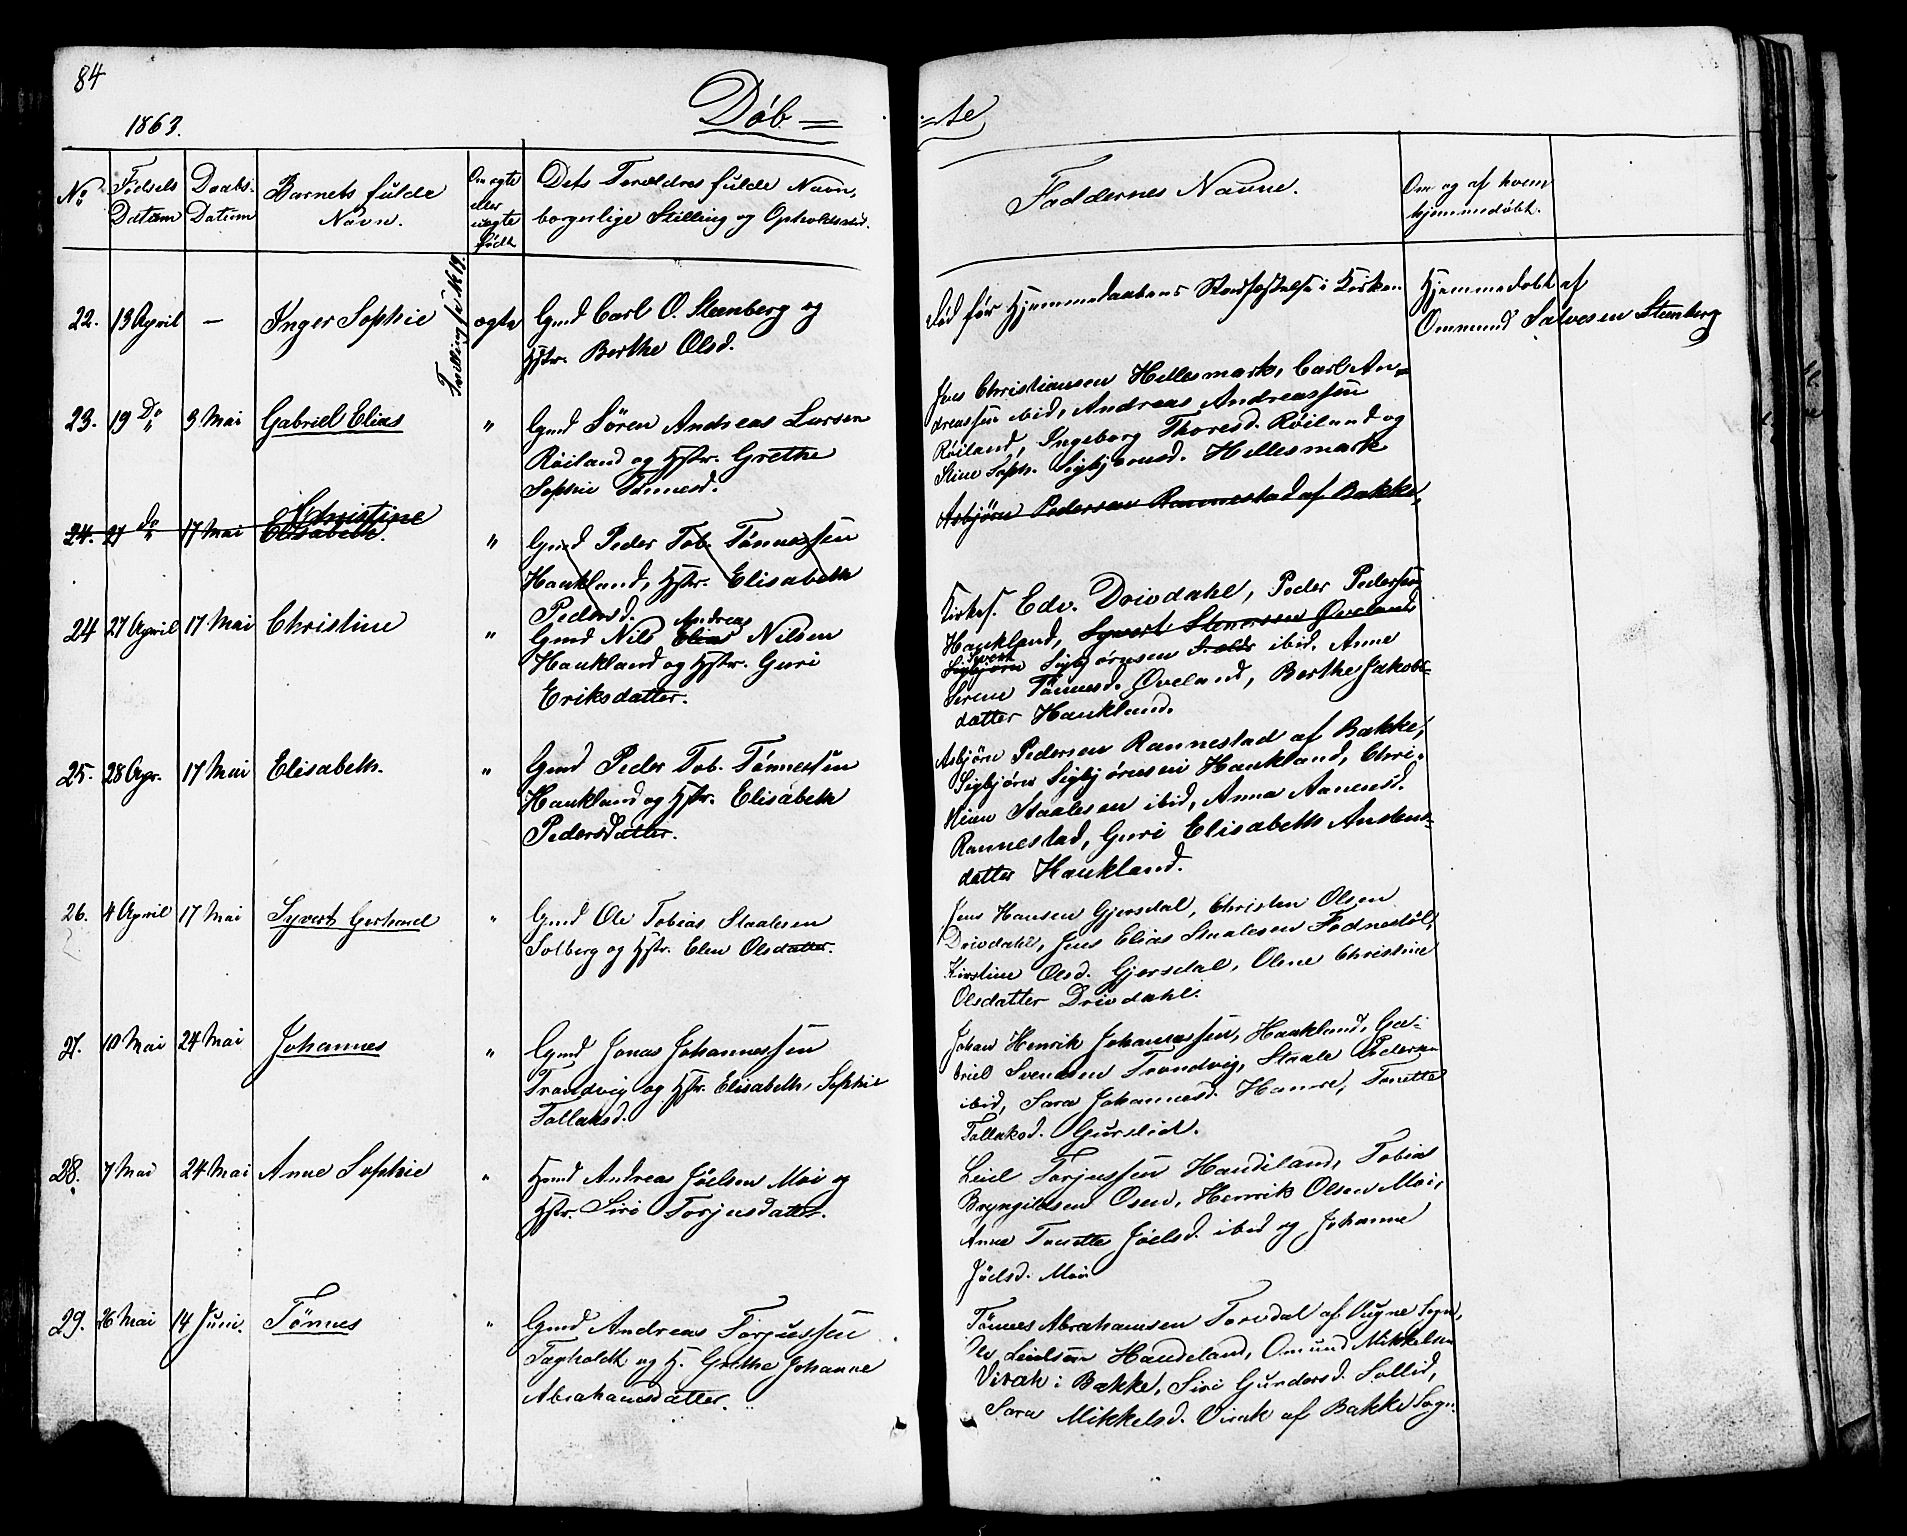 84
1863.
Døb=
=te
No
Fødsels Datum
Daabs- Datum
Barnets fulde Navn.
Om ægte eller uægte født
Dets Forældres fulde Navn, borgerlige Stilling og Opholdssted.
Faddernes Navne.
Om og af hvem hjemmedøbt.
22. 13 April — Inger Sophie
Tvilling se No 19.
ægte
Gmd Carl O. Stenberg og
Hstr. Berthe Olsd.
Død før Hjemmedaabens Stadfæstelse i Kirken
Hjemmedøbt af
Ommund Salvesen Stenberg
23. 19 Do 3 Mai Gabriel Elias "
Gmd Søren Andreas Larsen
Røiland og Hstr. Grethe
Sophie Tønnesd.
Jens Christiansen Hellesmark, Carl An-
dreassen ibid, Andreas Andreassen
Røiland, Ingeborg Thoresd. Røiland og
Stine Soph. Sigbjørnsd. Hellesmark
24. 27 do 17 Mai Christine
Elisabeth. "
Gmd Peder Tob. Tønnessen
Haukland, Hstr. Elisabeth
Pedersd.
Asbjørn Pedersen Rannestad af Bakke,
24 27 April 17 Mai Christine "
Gmd Nils Elias Andreas Nilsen
Haukland og Hstr. Guri
Eriksdatter.
Kirkes. Edv. Drivdahl, Peder Pedersen
Haukland, Syvert Stenersen Øveland
Sigbjørn Syvert Sigbjørnsen ibid. Anne
Serine Tønnesd. Øveland, Berthe Jakobs-
datter Haukland.
25. 28 Apr. 17 Mai Elisabeth. "
Gmd Peder Tob. Tønnessen
Haukland og Hstr. Elisabeth
Pedersdatter.
Asbjørn Pedersen Rannestad af Bakke,
Sigbjørn Sigbjørnsen Haukland, Chri-
stian Staalesen ibid, Anna Aanensd.
Rannestad, Guri Elisabeth Anstens-
datter Haukland.
26. 4 April 17 Mai Syvert Gerhard "
Gmd Ole Tobias Staalesen
Solberg og Hstr. Elen Olsdatter.
Jens Hansen Gjersdal, Christen Olsen
Drivdahl, Jens Elias Staalesen Fodnestøl,
Kirstine Olsd. Gjersdal, Oline Christine
Olsdatter Drivdahl.
27. 10 Mai 24 Mai Johannes "
Gmd Jonas Johannessen
Trandvig og Hstr. Elisabeth Sophie
Tollaksd.
Johan Henrik Johannessen, Haukland, Ga-
briel Svendsen Trondvig, Staale Pedersen
ibid, Sara Johannesd. Hamre, Tonette
Tollaksd. Gurslid.
28. 7 Mai 24 Mai Anne Sophie "
Hmd Andreas Jöelsen Moi og
Hstr. Siri Torjusdatter.
Leul Torjussen Haudeland, Tobias
Bryngildsen Osen, Henrik Olsen Moi,
Anne Tonette Jöelsd. ibid og Johanne
Jöelsd. Moi
29. 26 Mai 14 Juni. Tønnes "
Gmd Andreas Torjussen
Tagholdt og H. Grethe Johanne
Abrahamsdatter.
Tønnes Abrahamsen Fordal af Augne Sogn,
Ole Leulsen Haudeland, Omund Mikkelsen
Virak i Bakke, Siri Gundersd. Sollid,
Sara Mikkelsd. Virak af Bakke Sogn.